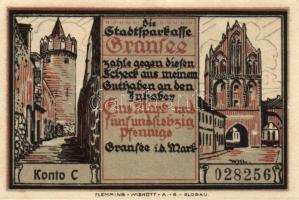 Die
Stadtsparkasse
Gransee
zahle gegen diesen
Scheck aus meinem
Guthaben an den
Inhaber
Eine Mark und
fünfundsiebzig
Pfennige
Gransee i.d. Mark
Konto C
028256
FLEMMING-WISKOTT-A.-G.-GLOGAU.